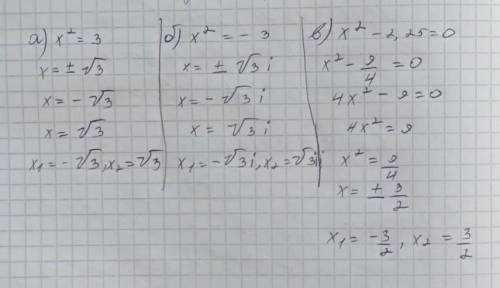 а) x² = 3
x = ± √3
x = - √3
x = √3
x₁ = - √3, x₂ = √3
б) x² = - 3
x = ± √3 i
x = - √3 i
x = √3 i
x₁ = - √3 i, x₂ = √3 i
в) x² - 2,25 = 0
x² - 9/4 = 0
4x² - 9 = 0
4x² = 9
x² = 9/4
x = ± 3/2
x₁ = -3/2, x₂ = 3/2